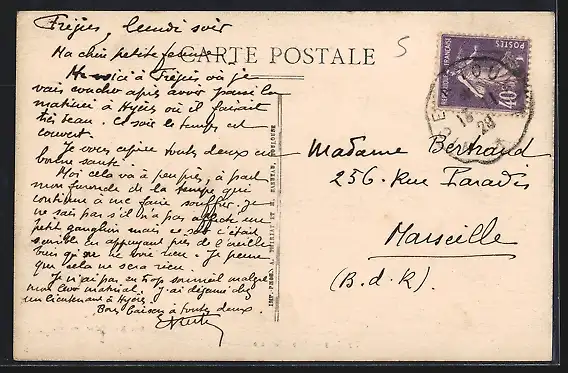 Fréjus, lundi soir
Ma chère petite femme
CARTE POSTALE
5
Me voici à Fréjus où je
vais coucher après avoir passé la
matinée à Hyères où il faisait
très beau. Ce soir le temps est
couvert.
Je vous espère toutes deux en
bonne santé.
Moi cela va à peu près, à part
mon furoncle de la tempe qui
continue à me faire souffrir. Je
ne sais pas s'il n'a pas affecté un
petit ganglion mais ce soir c'était
sensible en appuyant près de l'oreille
bien qu'on ne voie rien. Je pense
que cela ne sera rien.
Je n'ai pas eu trop sommeil malgré
mon lever matinal. J'ai déjeuné chez
un lieutenant à Hyères.
Bons baisers à toutes deux.
IMP. PHOT. A. THIRIAT ET TOULOUSE
POSTES
REPUBLIQUE FRANÇAISE
40c
Madame Bertrand
256. Rue Paradis
Marseille
(B. d. R).